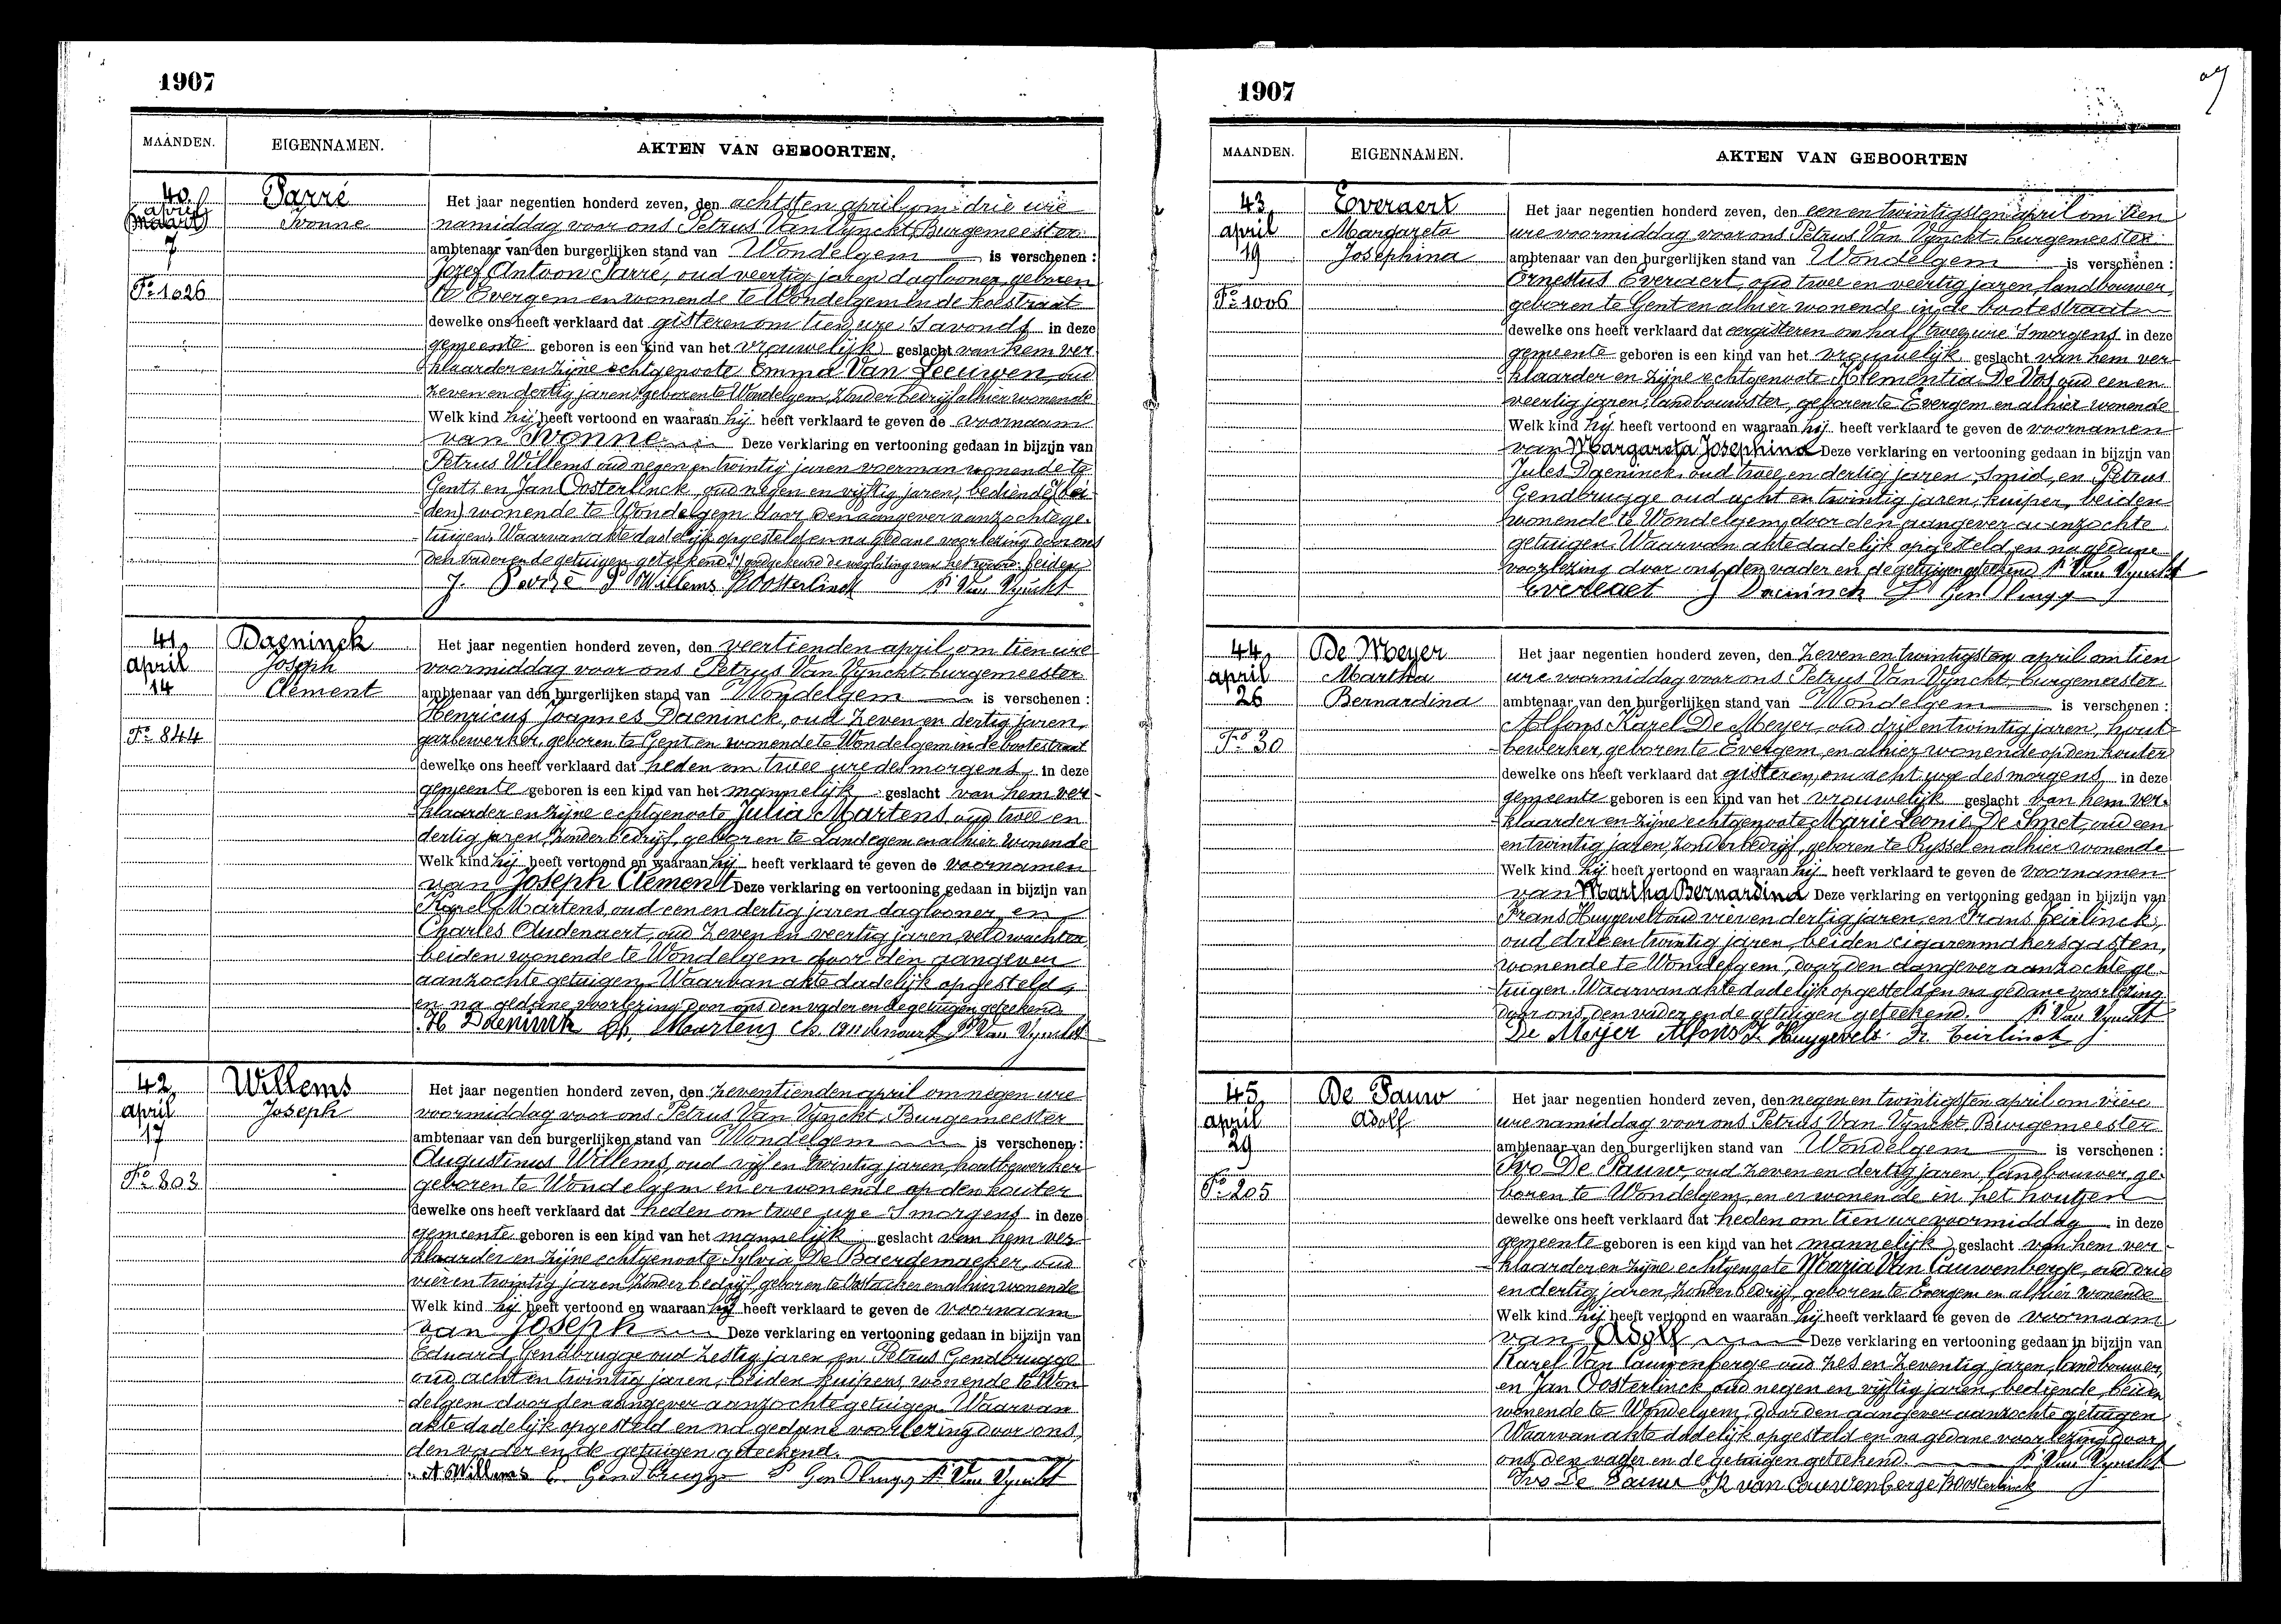 1907
MAANDEN. EIGENNAMEN. AKTEN VAN GEBOORTEN.
40 Parré Het jaar negentien honderd zeven, den achtsten april om drie ure
april
maart Ivonne namiddag voor ons Petrus Van Vynckt, Burgemeester
7 ambtenaar van den burgerlijken stand van Wondelgem is verschenen :
Jozef Antoon Parré, oud veertig jaren daglooner, geboren
Fo 1026 te Evergem en wonende te Wondelgem in de
dewelke ons heeft verklaard dat gisteren om tien ure 's avonds in deze
gemeente geboren is een kind van het vrouwelijk geslacht van hem ver
klaarder en zijne echtgenoote Emma Van Leeuwen, oud
zeven en dertig jaren, geboren te Wondelgem, zonder bedrijf alhier wonende
Welk kind hij heeft vertoond en waaraan hij heeft verklaard te geven de voornaam
van Ivonne Deze verklaring en vertooning gedaan in bijzijn van
Petrus Willems oud negen en twintig jaren voerman wonende te
Gent, en Jan Oosterlinck, oud negen en vijftig jaren, bediende (bei
den) wonende te Wondelgem door den aangever aanzochte ge-
tuigen. Waarvan akte dadelijk opgesteld en na gedane voorlezing door ons
den vader en de getuigen geteekend. goedgekeurd de weglating van het woord beiden
J. Parré P Willems Oosterlinck P. Van Vynckt
41 Daeninck Het jaar negentien honderd zeven, den veertienden april om tien ure
april Joseph voormiddag voor ons Petrus Van Vynckt burgemeester
14 Clement ambtenaar van den burgerlijken stand van Wondelgem is verschenen :
Henricus Joannes Daeninck, oud zeven en dertig jaren,
Fo 844 gazbewerker, geboren te Gent en wonende te Wondelgem in de bootestraat
dewelke ons heeft verklaard dat heden om twee ure des morgens in deze
gemeente geboren is een kind van het mannelijk geslacht van hem ver-
klaarder en zijne echtgenoote Julia Martens oud twee en
dertig jaren, zonder bedrijf, geboren te Landegem en alhier wonende
Welk kind hij heeft vertoond en waaraan hij heeft verklaard te geven de voornamen
van Joseph Clement Deze verklaring en vertooning gedaan in bijzijn van
Karel Martens oud een en dertig jaren daglooner, en
Charles Audenaert, oud zeven en veertig jaren, veldwachter
beiden wonende te Wondelgem door den aangever
aanzochte getuigen. Waarvan akte dadelijk opgesteld
en na gedane voorlezing door ons den vader en de getuigen geteekend
H Daeninck Martens Ch. Audenaert P. Van Vynckt
42 Willems Het jaar negentien honderd zeven, den zeventienden april om negen ure
april Joseph voormiddag voor ons Petrus Van Vynckt, Burgemeester
17 ambtenaar van den burgerlijken stand van Wondelgem is verschenen :
Augustinus Willems, oud vijf en twintig jaren, houtbewerker
Fo 803 geboren te Wondelgem en er wonende op den kouter
dewelke ons heeft verklaard dat heden om twee ure 's morgens in deze
gemeente geboren is een kind van het mannelijk geslacht van hem ver-
klaarder en zijne echtgenoote Sylvia De Baerdemaeker, oud
vier en twintig jaren zonder bedrijf geboren te Oostacker en alhier wonende
Welk kind hij heeft vertoond en waaraan hij heeft verklaard te geven de voornaam
van Joseph Deze verklaring en vertooning gedaan in bijzijn van
Eduard Gendbrugge oud zestig jaren en Petrus Gendbrugge
oud acht en twintig jaren, beiden kuipers, wonende te Won
delgem door den aangever aanzochte getuigen. Waarvan
akte dadelijk opgesteld en na gedane voorlezing door ons,
den vader en de getuigen geteekend.
A Willems E. Gendbrugge P Gendbrugge P. Van Vynckt
1907
MAANDEN. EIGENNAMEN. AKTEN VAN GEBOORTEN
43 Everaert Het jaar negentien honderd zeven, den een en twintigsten april om tien
april Margareta ure voormiddag voor ons Petrus Van Vynckt burgemeester
19 Josephina ambtenaar van den burgerlijken stand van Wondelgem is verschenen :
Ernestus Everaert, oud twee en veertig jaren, landbouwer,
Fo 1006 geboren te Gent en alhier wonende in de bootestraat
dewelke ons heeft verklaard dat eergisteren om half twee ure 's morgens in deze
gemeente geboren is een kind van het vrouwelijk geslacht van hem ver-
klaarder en zijne echtgenoote Klementia De Vos oud een en
veertig jaren, landbouwster, geboren te Evergem en alhier wonende
Welk kind hij heeft vertoond en waaraan hij heeft verklaard te geven de voornamen
van Margareta Josephina Deze verklaring en vertooning gedaan in bijzijn van
Jules Daeninck, oud twee en dertig jaren, smid, en Petrus
Gendbrugge oud acht en twintig jaren, kuiper, beiden
wonende te Wondelgem, door den aangever aanzochte
getuigen. Waarvan akte dadelijk opgesteld en na gedane
voorlezing door ons, den vader en de getuigen geteekend P. Van Vynckt
Everaet J Daeninck P Gendbrugge
44 De Meyer Het jaar negentien honderd zeven, den zeven en twintigsten april om tien
april Martha ure voormiddag voor ons Petrus Van Vynckt, burgemeester
26 Bernardina ambtenaar van den burgerlijken stand van Wondelgem is verschenen :
Alfons Karel De Meyer, oud drij en twintig jaren, hout-
Fo 30 bewerker, geboren te Evergem, en alhier wonende op den kouter
dewelke ons heeft verklaard dat gisteren, om acht ure des morgens in deze
gemeente geboren is een kind van het vrouwelijk geslacht van hem ver-
klaarder en zijne echtgenoote Marie Leonie De Smet, oud een
en twintig jaren, zonder bedrijf, geboren te Ryssel en alhier wonende
Welk kind hij heeft vertoond en waaraan hij heeft verklaard te geven de voornamen
van Martha Bernardina Deze verklaring en vertooning gedaan in bijzijn van
Frans Huygevelt oud vier en dertig jaren, en Frans Teirlinck,
oud drie en twintig jaren, beiden cigarenmakersgasten,
wonende te Wondelgem, door den aangever aanzochte ge-
tuigen. Waarvan akte dadelijk opgesteld en na gedane voorlezing
door ons, den vader en de getuigen geteekend. P. Van Vynckt
De Meyer Alfons F. Huygevelt Fr. Teirlinck
45 De Pauw Het jaar negentien honderd zeven, den negen en twintigsten april om viere
april Adolf ure namiddag voor ons Petrus Van Vynckt, Burgemeester
29 ambtenaar van den burgerlijken stand van Wondelgem is verschenen :
Ivo De Pauw, oud zeven en dertig jaren, landbouwer, ge-
Fo 205 boren te Wondelgem, en er wonende in het houtjen
dewelke ons heeft verklaard dat heden om tien ure voormiddag in deze
gemeente geboren is een kind van het mannelijk geslacht van hem ver-
klaarder en zijne echtgenoote Maria Van Cauwenberge, oud drie
en dertig jaren, zonder bedrijf, geboren te Evergem en alhier wonende
Welk kind hij heeft vertoond en waaraan hij heeft verklaard te geven de voornaam
van Adolf Deze verklaring en vertooning gedaan in bijzijn van
Karel Van Cauwenberge oud zes en zeventig jaren, landbouwer,
en Jan Oosterlinck oud negen en vijftig jaren, bediende, beiden
wonende te Wondelgem, door den aangever aanzochte getuigen
Waarvan akte dadelijk opgesteld en na gedane voorlezing door
ons, den vader en de getuigen geteekend. P. Van Vynckt
Ivo De Pauw K van Couwenberge Oosterlinck